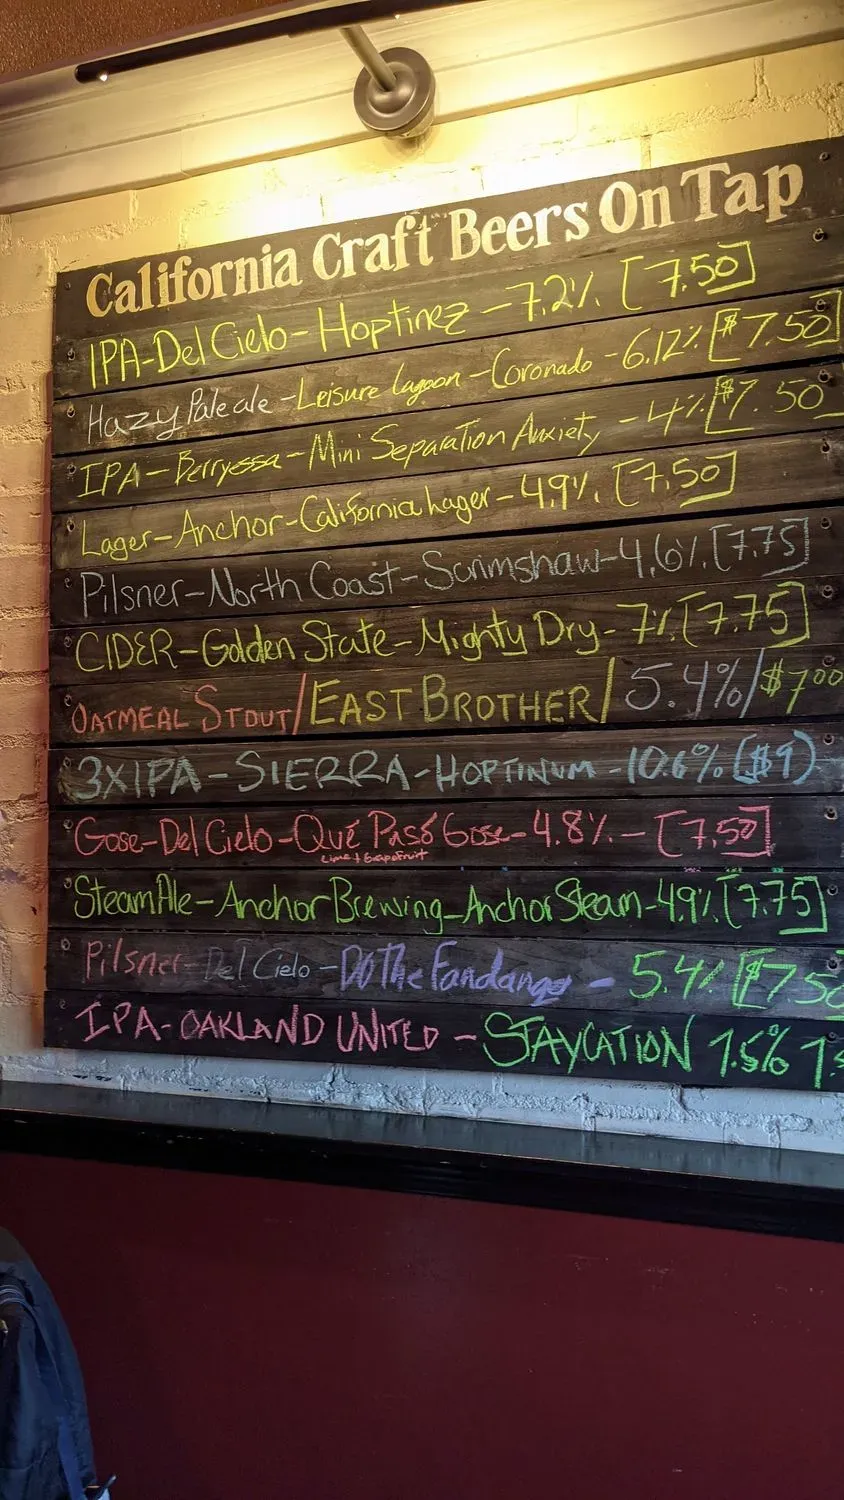 California Craft Beers On Tap
IPA-Del Cielo-Hoptinez-7.2% [7.50]
Hazy Pale ale-Leisure Lagoon-Coronado-6.12% [$7.50]
IPA-Berryessa-Mini Separation Anxiety-4% [$7.50
Lager-Anchor-California Lager-4.9% [7.50]
Pilsner-North Coast-Scrimshaw-4.6% [7.75]
CIDER-Golden State-Mighty Dry-7% [7.75]
OATMEAL STOUT/EAST BROTHER/5.4%/$7.00
3XIPA-SIERRA-HOPTINUM-10.6% ($9)
Gose-Del Cielo-Qué Pasó Gose-4.8%-[7.50]
Lime + Grapefruit
Steam Ale-Anchor Brewing-Anchor Steam-4.9% [7.75]
Pilsner-Del Cielo-Do The Fandango-5.4% [$7.50
IPA-OAKLAND UNITED-STAYCATION 7.5%